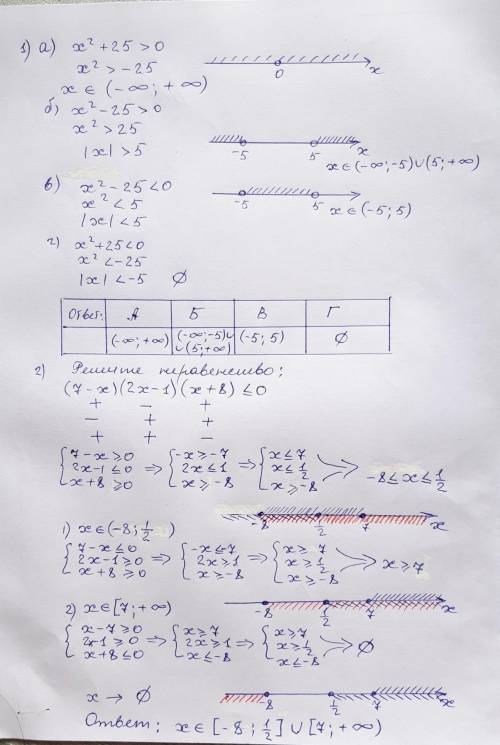 1) а) x² + 25 > 0
x² > -25
x ∈ (-∞; +∞)
0 x
б) x² - 25 > 0
x² > 25
|x| > 5
-5 5 x
x ∈ (-∞; -5) ∪ (5; +∞)
в) x² - 25 < 0
x² < 5
|x| < 5
-5 5 x ∈ (-5; 5)
г) x² + 25 < 0
x² < -25
|x| < -5 ∅
Ответ: А Б В Г
(-∞; +∞) (-∞; -5) ∪ (-5; 5) ∅
∪ (5; +∞)
2) Решите неравенство;
(7-x)(2x-1)(x+8) ≤ 0
+ - +
- + +
+ + -
{7-x ≥ 0 {-x ≥ -7 {x ≤ 7
{2x-1 ≤ 0 ⇒ {2x ≤ 1 ⇒ {x ≤ 1/2 > -8 ≤ x ≤ 1/2
{x+8 ≥ 0 {x ≥ -8 {x ≥ -8
-8 1/2 7 x
1) x ∈ (-8; 1/2)
{7-x ≤ 0 {-x ≤ -7 {x ≥ 7
{2x-1 ≥ 0 ⇒ {2x ≥ 1 ⇒ {x ≥ 1/2 > x ≥ 7
{x+8 ≥ 0 {x ≥ -8 {x ≥ -8
2) x ∈ [7; +∞)
-8 1/2 7 x
{x-7 ≥ 0 {x ≥ 7 {x ≥ 7
{2x-1 ≥ 0 ⇒ {2x ≥ 1 ⇒ {x ≥ 1/2 > ∅
{x+8 ≤ 0 {x ≤ -8 {x ≤ -8
x → ∅
-8 1/2 7 x
Ответ; x ∈ [-8; 1/2] ∪ [7; +∞)